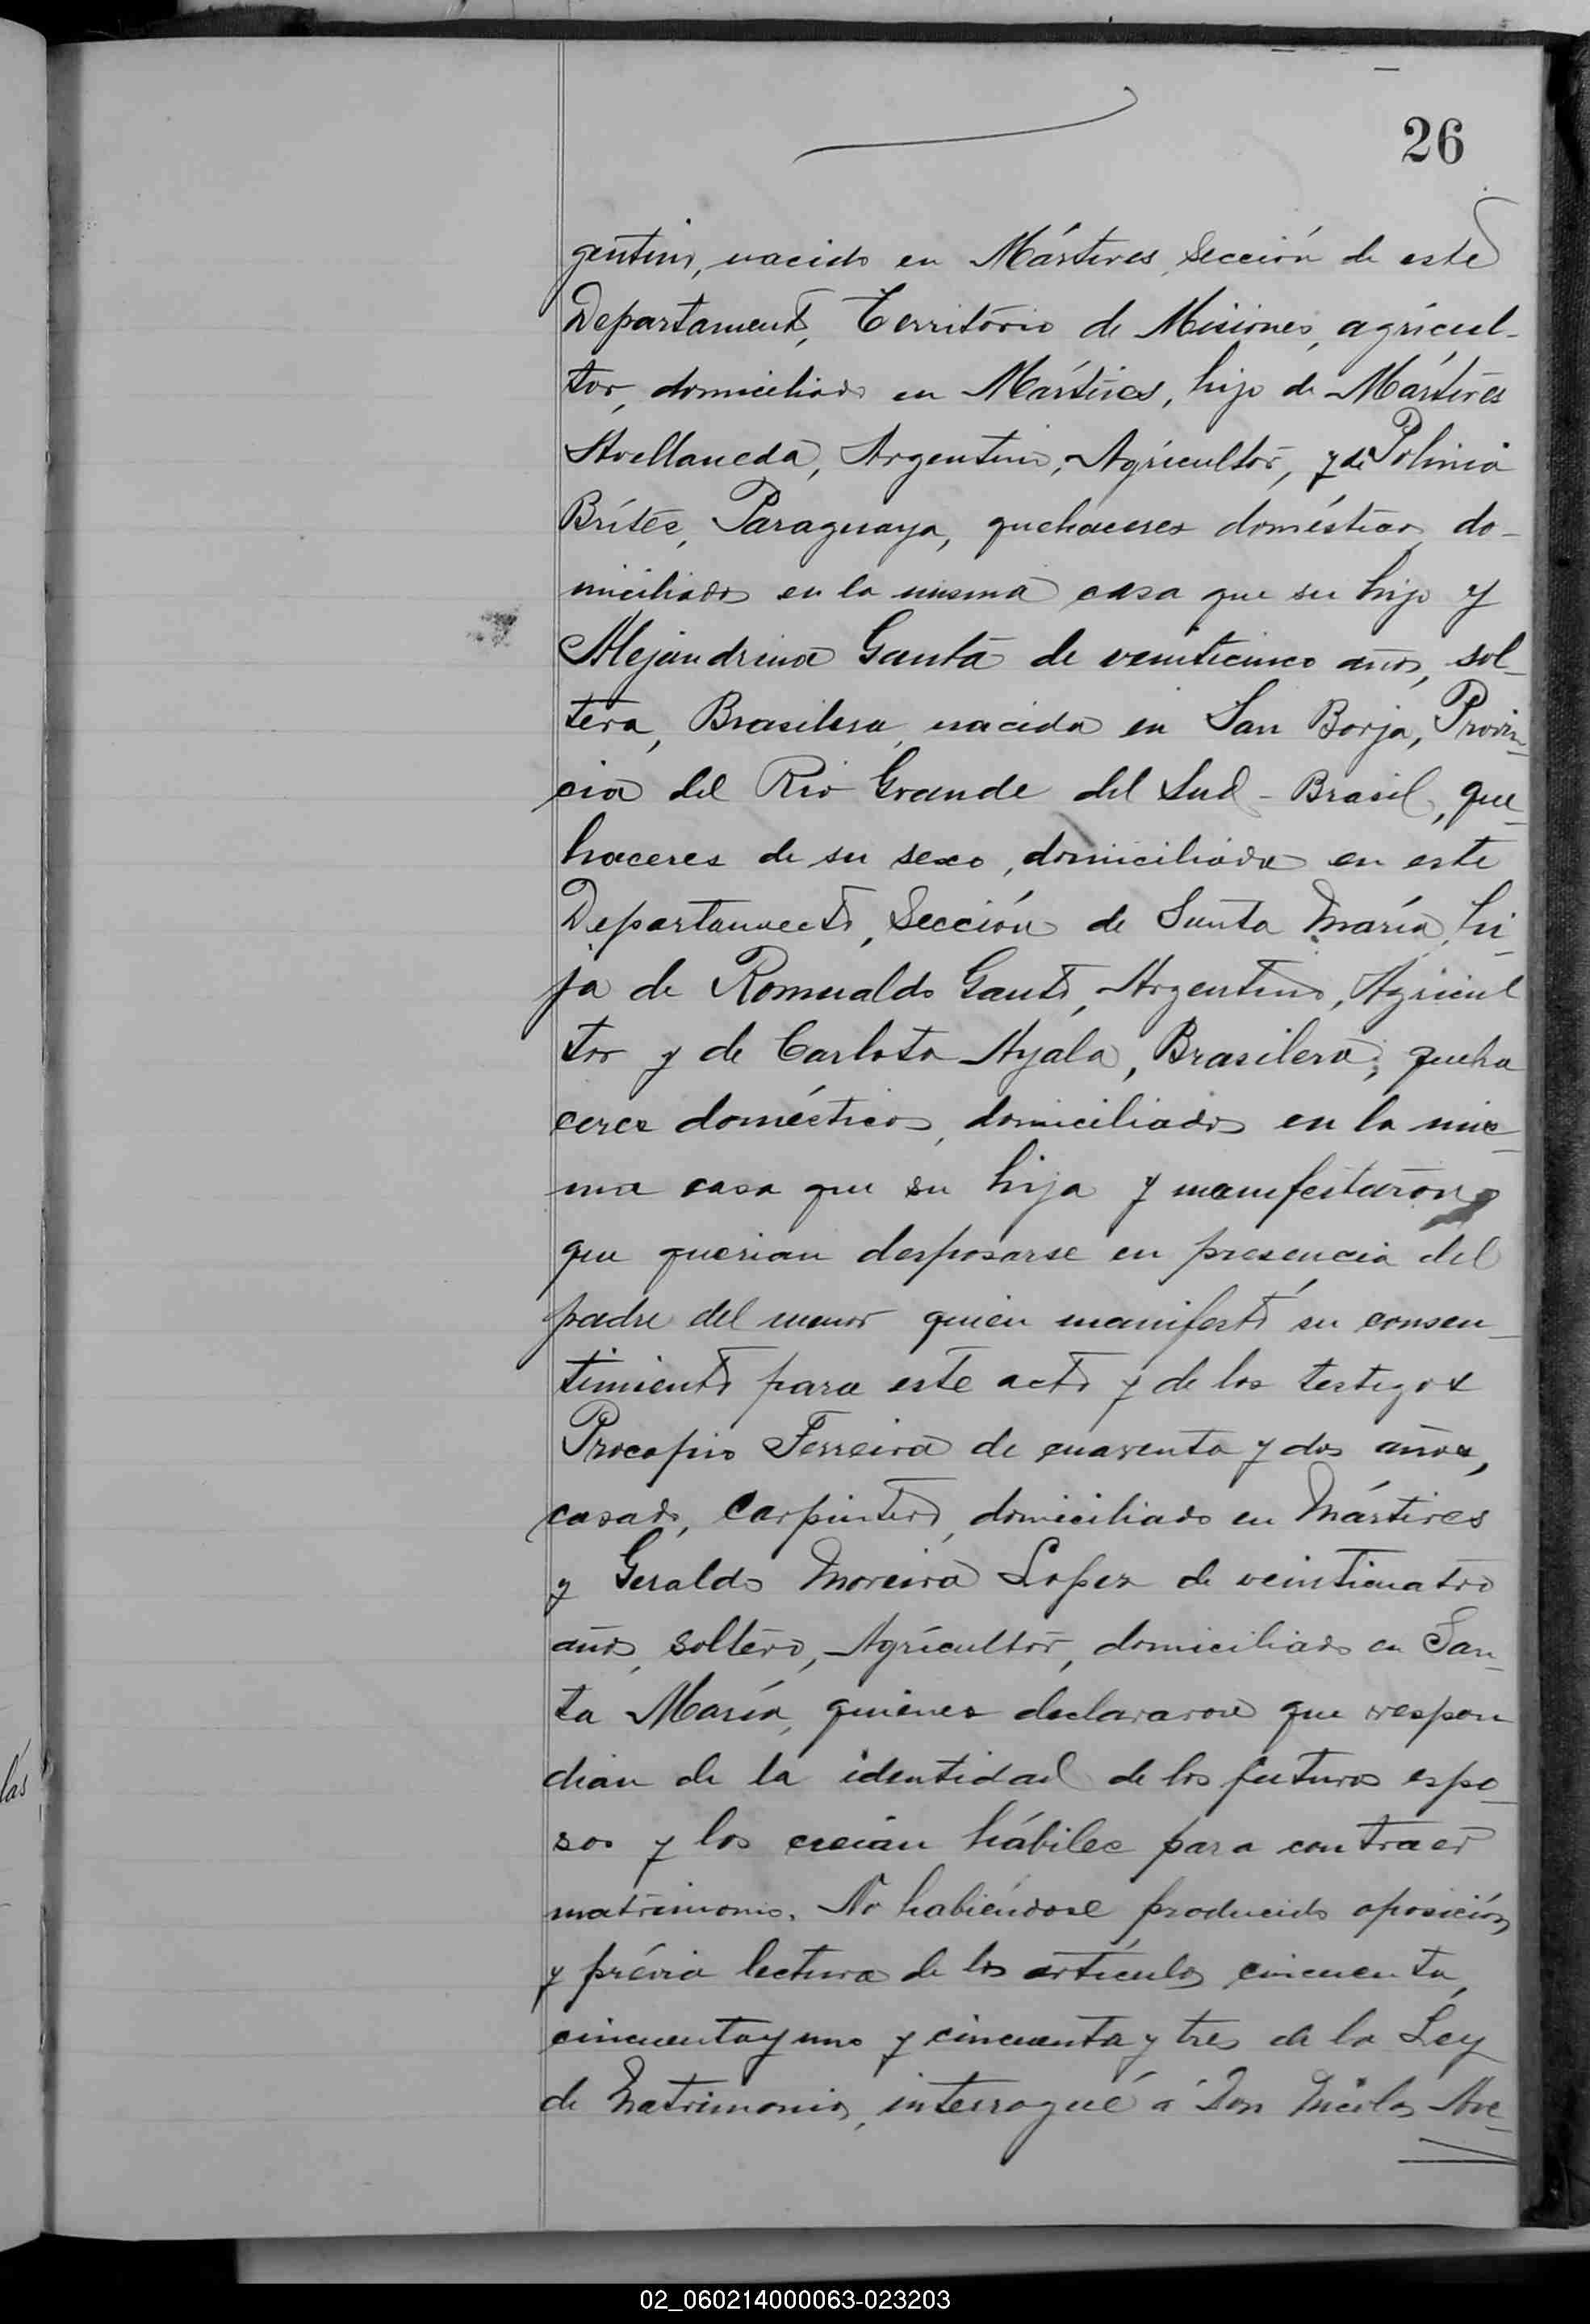 26
gentino, nacido en Mártires, Sección de este
Departamento, Territorio de Misiones, agricul-
tor, domiciliado en Mártires, hijo de Mártires
Avellaneda, Argentino, Agricultor, y de Polinia
Brítez, Paraguaya, quehaceres domésticos, do-
miciliados en la misma casa que su hijo y
Alejandrina Gauto de veinticinco años, sol-
tera, Brasilera, nacida en San Borja, Provin-
cia del Rio Grande del Sud - Brasil, que-
haceres de su sexo, domiciliada en este
Departamento, Sección de Santa María, hi-
ja de Romualdo Gauto, Argentino, Agricul
tor y de Carlota Ayala, Brasilera, queha
ceres domésticos, domiciliados en la mis-
ma casa que su hija y manifestaron
que querian desposarse en presencia del
padre del menor quien manifestó su consen-
timiento para este acto y de los testigos
Procopio Ferreira de cuarenta y dos años,
casado, Carpintero, domiciliado en Mártires
y Geraldo Moreira Lopez de veinticuatro
años, soltero, Agricultor, domiciliado en San-
ta María, quienes declararon que respon
dian de la identidad de los futuros espo-
sos y los creian hábiles para contraer
matrimonio. No habiéndose producido oposición,
y prévia lectura de los artículos cincuenta,
cincuenta y uno y cincuenta y tres de la Ley
de Matrimonio, interrogué á Don Nicolas Ave-
lás
02_060214000063-023203